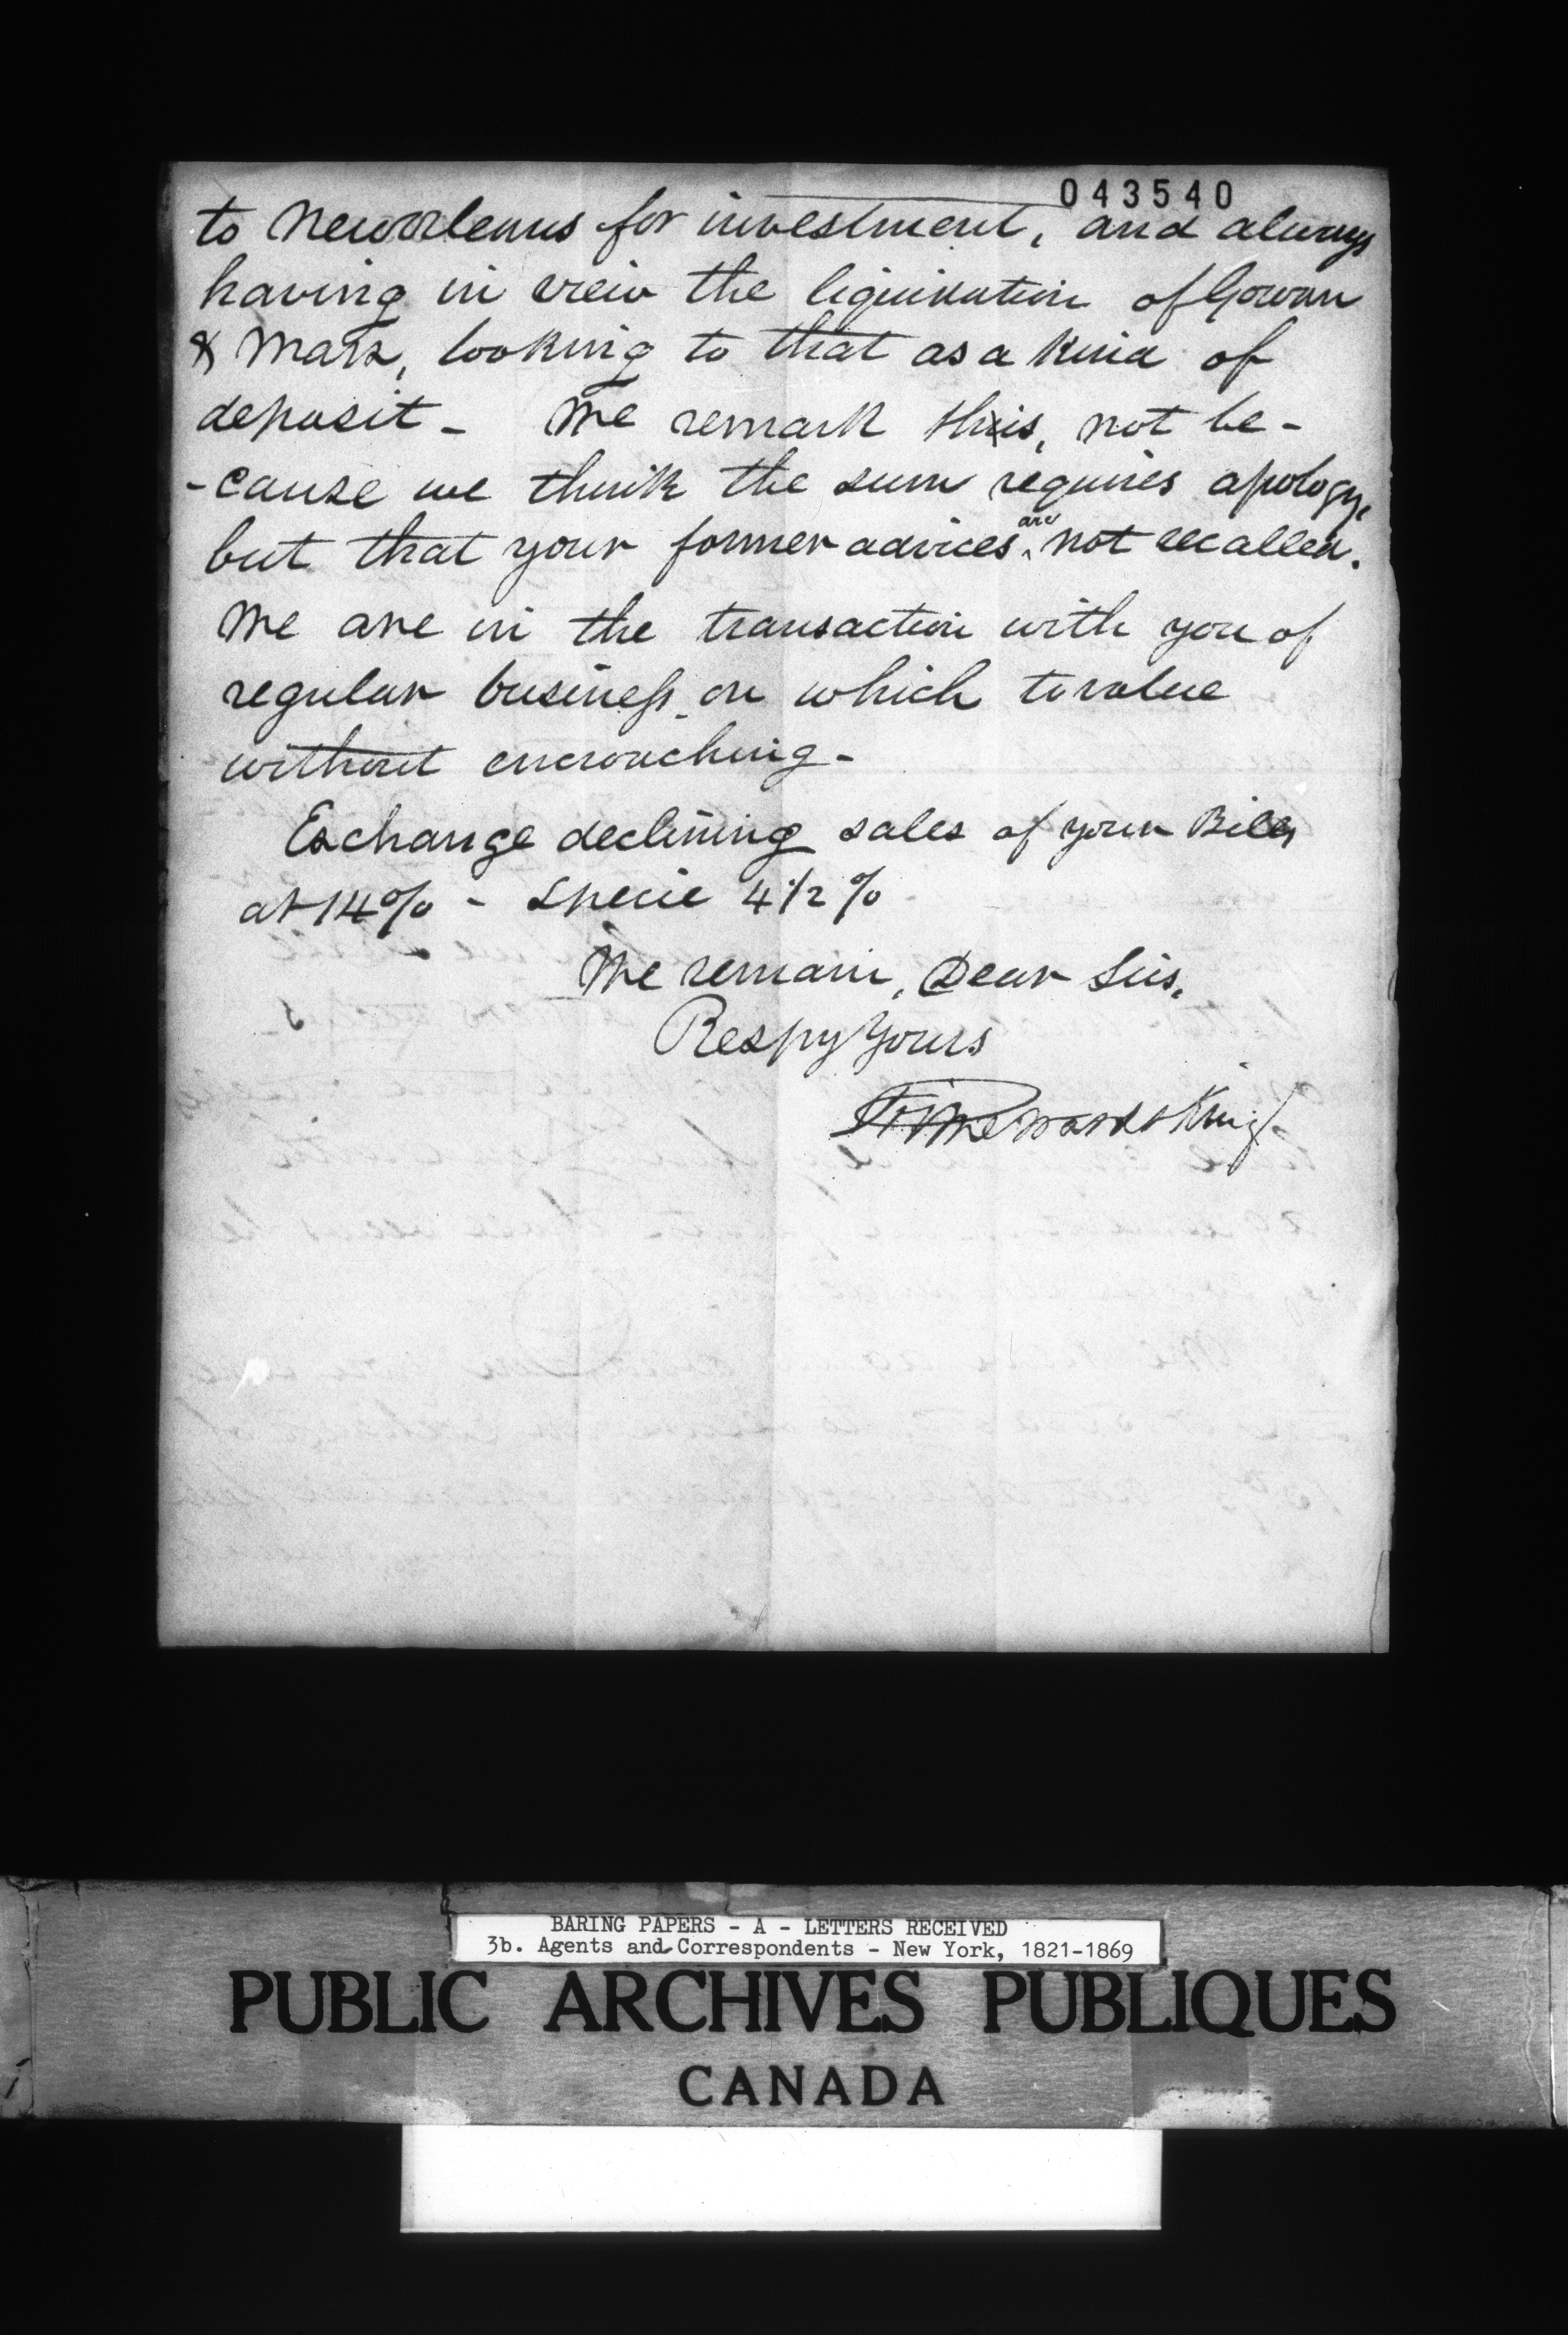 043540
to New Orleans for investment, and always
having in view the liquidation of Gowan
& Marx, looking to that as a kind of
deposit - We remark this, not be-
-cause we think the sum requires apology,
but that your former advices are not recalled.
We are in the transaction with you of
regular business on which to value
without encroaching -
Exchange declining sales of your Bills
at 14% - Specie 4 1/2 %
We remain, Dear Sirs,
Respy Yours
Prime Ward & King
BARING PAPERS - A - LETTERS RECEIVED
3b. Agents and Correspondents - New York, 1821-1869
PUBLIC ARCHIVES PUBLIQUES
CANADA